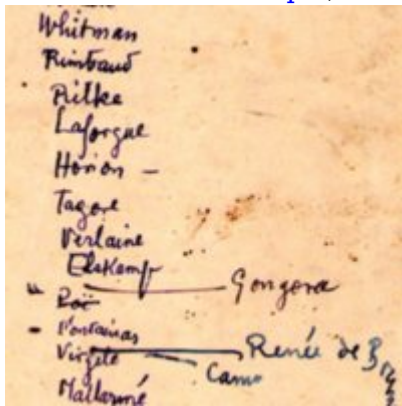 Whitman
Rimbaud
Rilke
Laforgue
Horion —
Tagore
Verlaine
Elskamp
Gongora
" Poë
- Fontainas
Virgile
Renée de B
Camo
Mallarmé